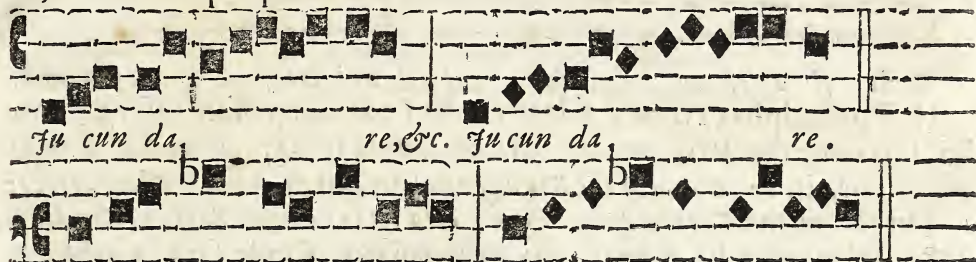 Ju cun da, re,&c. Ju cun da, re.